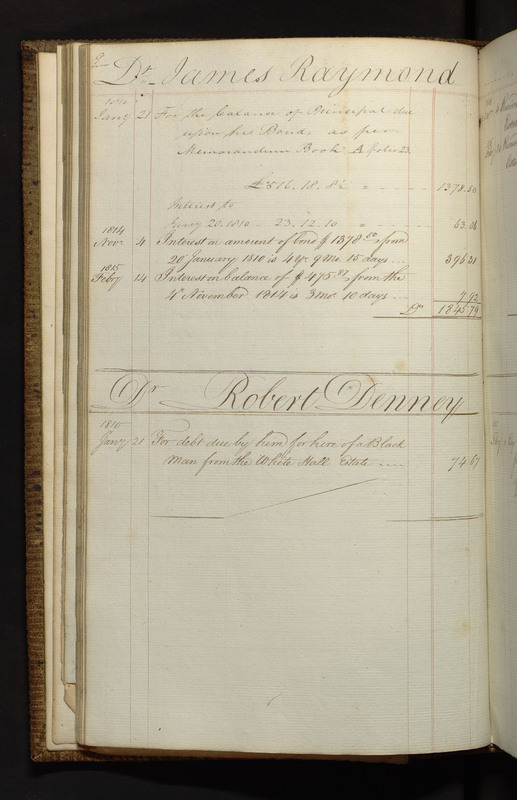 Dr James Raymond
1810
Jany 21 For the balance of Principal due
upon his Bond, as per
Memorandum Book A folio 23
£516.18.8½ 1378.50
Interest to
Jany 20. 1810 - 23.12.10 63.06
1814
Novr 4 Interest on amount of bond $1378 50 from
20 January 1810 is 4 yr 9 Mo. 15 days 396 31
1815
Febry 14 Interest on balance of $475 87 from the
4th November 1814 is 3 mo. 10 days 7 92
Ds 1845 79
Dr Robert Denney
1810
Jany 21 For debt due by him for hire of a Black
Man from the White Hall Estate 74 67